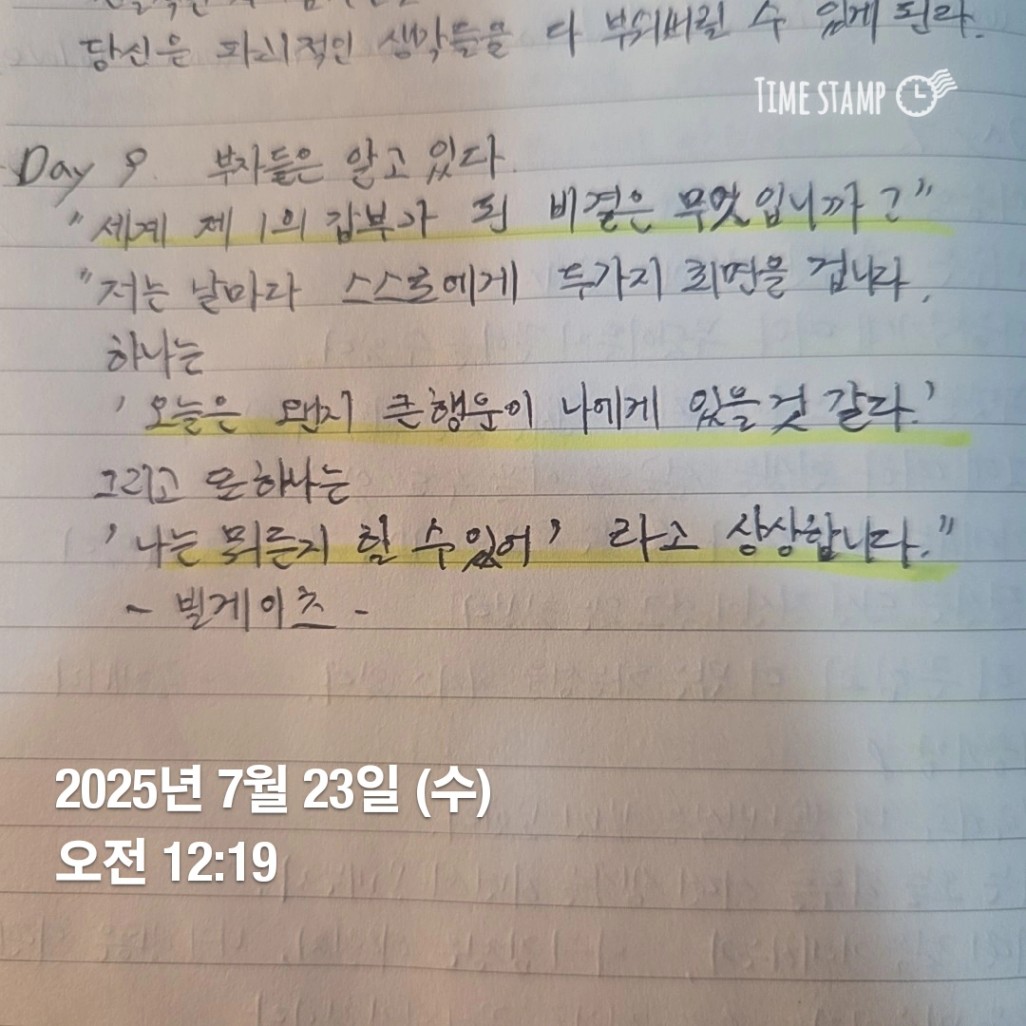 당신은 파괴적인 생각들을 다 부숴버릴 수 있게 된다.
TIME STAMP
Day 9. 부자들은 알고 있다.
"세계 제 1의 갑부가 된 비결은 무엇입니까?"
"저는 날마다 스스로에게 두가지 최면을 겁니다.
하나는
'오늘은 왠지 큰행운이 나에게 있을것 같다.'
그리고 또하나는
'나는 뭐든지 할 수있어' 라고 상상합니다."
- 빌게이츠 -
2025년 7월 23일 (수)
오전 12:19